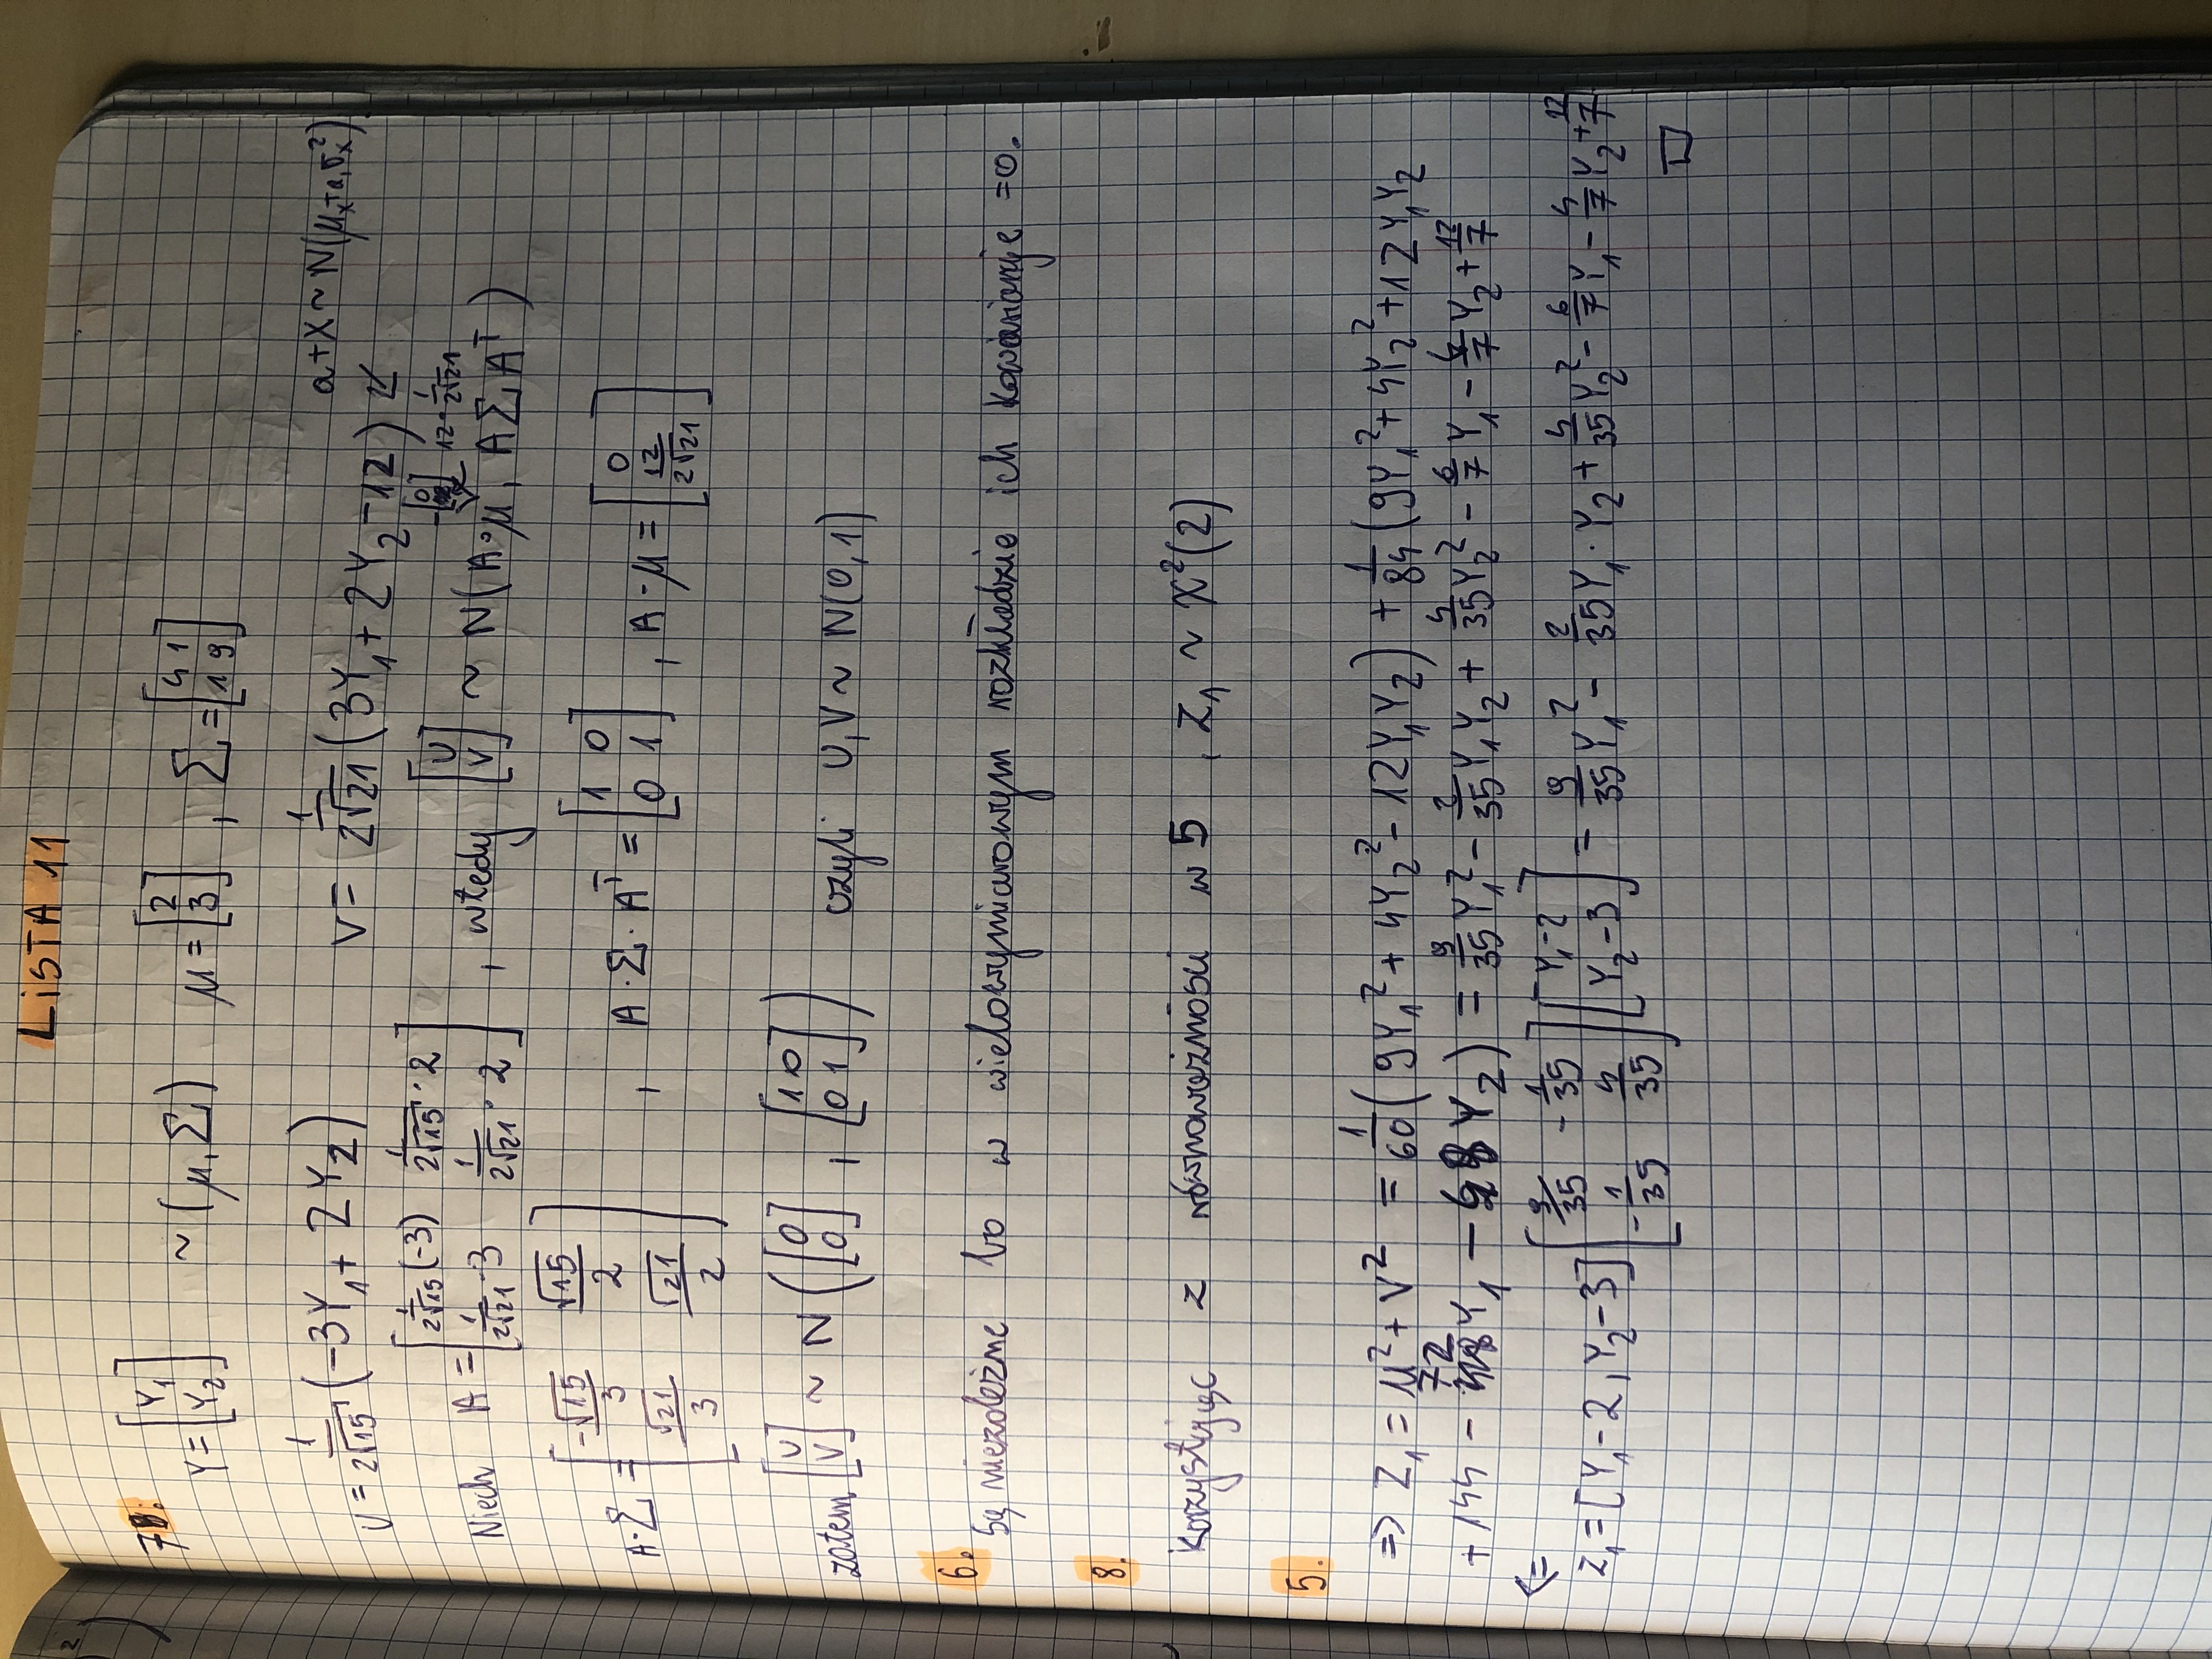 LISTA 11
7.
Y = [Y₁ Y₂] ~ (μ, Σ) μ = [2 3], Σ = [4 1 1 9]
U = 1/(2√15) (-3Y₁ + 2Y₂) V = 1/(2√21) (3Y₁ + 2Y₂ - 12) a+X ~ N(μₓ+a, σₓ²)
Niech A = [1/(2√15) (-3) 1/(2√15) · 2 1/(2√21) · 3 1/(2√21) · 2], wtedy [U V] ~ N(A·μ, AΣAᵀ) -[0 12 · 1/(2√21)]
A·Σ = [-√15/3 √15/2 √21/3 √21/2], A·Σ·Aᵀ = [1 0 0 1], A·μ = [0 12/(2√21)]
zatem [U V] ~ N([0 0], [1 0 0 1]) czyli U,V ~ N(0,1)
6.
Są niezależne bo w wielowymiarowym rozkładzie ich kowariancje = 0.
8.
korzystając z równoważności w 5, Z₁ ~ χ²(2)
5.
=> Z₁ = μ² + V² = 1/60 (9Y₁² + 4Y₂² - 12Y₁Y₂) + 1/84 (9Y₁² + 4Y₂² + 12Y₁Y₂
+144 - 72Y₁ - 48Y₂) = 9/35 Y₁² - 2/35 Y₁Y₂ + 4/35 Y₂² - 6/7 Y₁ - 4/7 Y₂ + 12/7
<=
Z₁ = [Y₁-2, Y₂-3] [9/35 -1/35 -1/35 4/35] [Y₁-2 Y₂-3] = 9/35 Y₁² - 2/35 Y₁·Y₂ + 4/35 Y₂² - 6/7 Y₁ - 4/7 Y₂ + 12/7
□